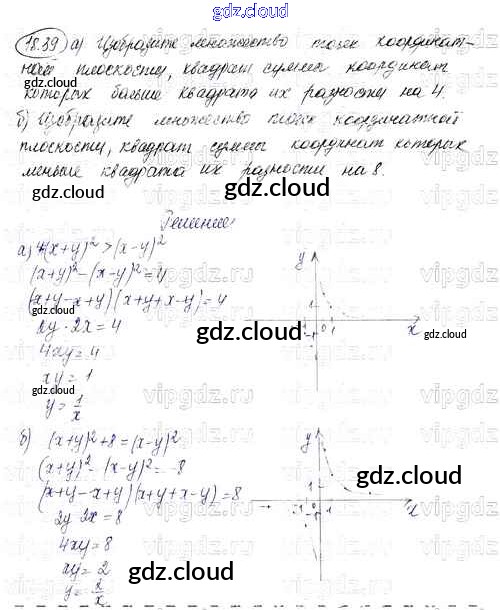 gdz.cloud
18.39 а) Изобразите множество точек координат-
ной плоскости, квадрат суммы координат
которых больше квадрата их разности на 4.
б) Изобразите множество точек координатной
плоскости, квадрат суммы координат которых
меньше квадрата их разности на 8.
gdz.cloud
gdz.cloud
Решение
а) (x+y)² > (x-y)²
(x+y)² - (x-y)² = 4
(x+y-x+y)(x+y+x-y) = 4
2y · 2x = 4
4xy = 4
xy = 1
y = 1/x
y
1
-1 0 1
-1
x
gdz.cloud
gdz.cloud
б) (x+y)² + 8 = (x-y)²
(x+y)² - (x-y)² = -8
(x+y-x+y)(x+y+x-y) = 8
2y · 2x = 8
4xy = 8
xy = 2
y = 2/x
y
1
-1 0 1
-1
x
gdz.cloud
gdz.cloud
vipgdz.ru